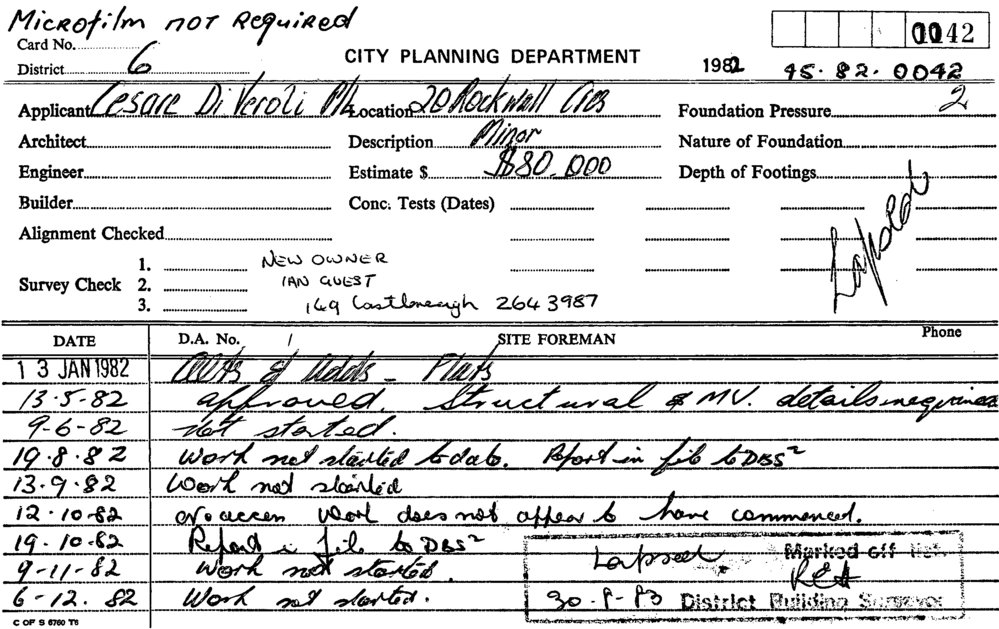 Microfilm not Required
Card No.
0042
District 6
CITY PLANNING DEPARTMENT
1982 45.82.0042
Applicant Cesare Di Veroli P/L Location 20 Rockwall Cres Foundation Pressure 2
Architect Description Minor Nature of Foundation
Engineer Estimate $ $80,000 Depth of Footings
Builder Conc. Tests (Dates)
Lapsed
Alignment Checked
Survey Check 1. NEW OWNER
2. IAN GUEST
3. 149 Castlereagh 264 3987
DATE D.A. No. SITE FOREMAN Phone
13 JAN 1982 Alts & Adds - Flats
13-5-82 approved. Structural & MV. details
9-6-82 not started.
19.8.82 Work not started to date. Report in file to DBS²
13.9.82 Work not started
12.10.82 No access work does not appear to have commenced.
19.10.82 Report in file to DBS²
9-11-82 Work not started.
6-12.82 Work not started.
Lapsed Marked off list
30-8-83 District Building Surveyor
C OF S 6760 T6